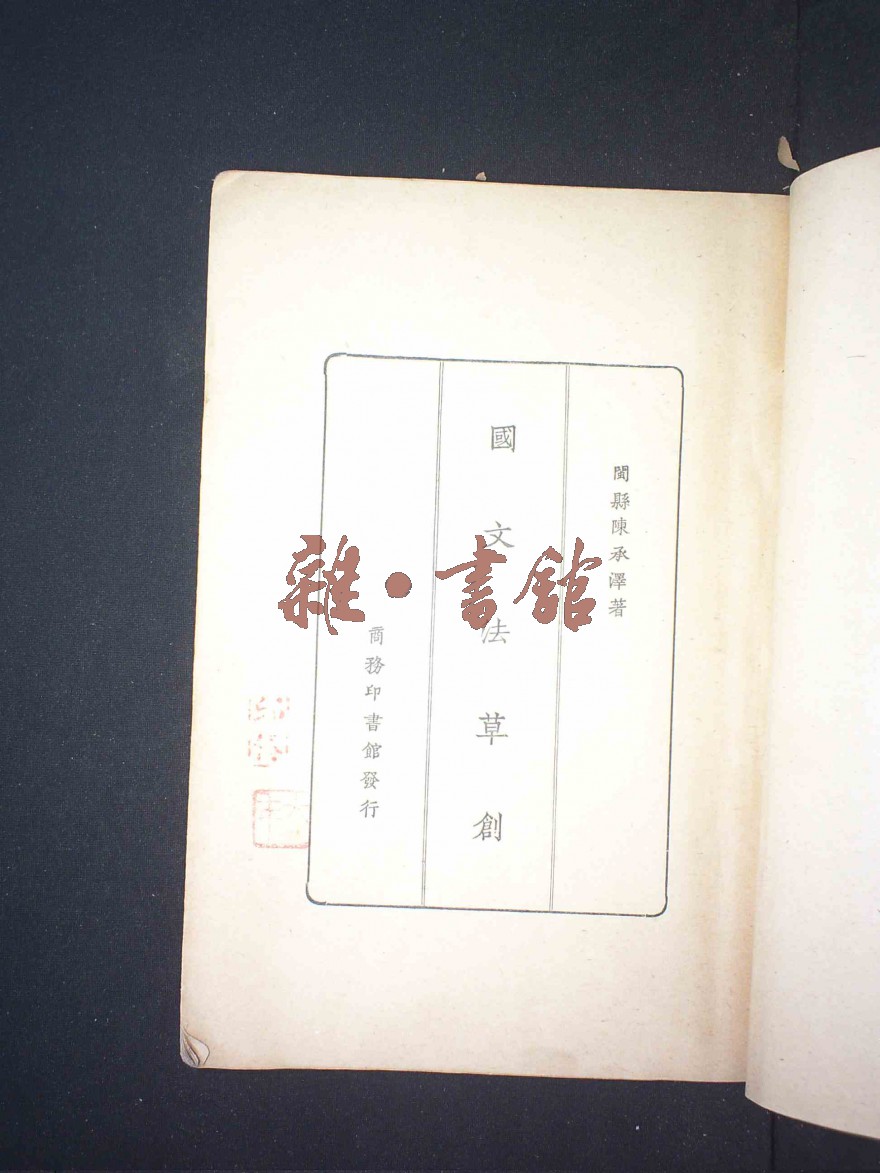 閩縣陳承澤著
國文法草創
商務印書館發行
雜·書館